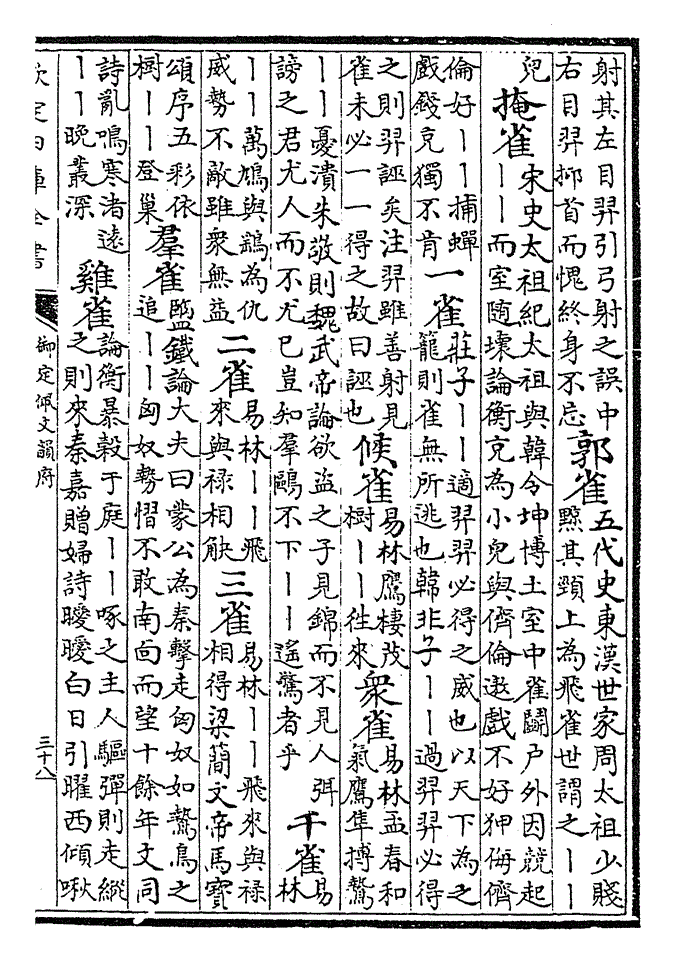 射其左目羿引弓射之誤中
右目羿抑首而愧終身不忘
郭雀
五代史東漢世家周太祖少賤
黥其頸上為飛雀世謂之丨丨
兒
掩雀
宋史太祖紀太祖與韓令坤博土室中雀鬭戶外因競起
丨丨而室隨壞論衡充為小兒與儕倫遨戲不好狎侮儕
倫好丨丨捕蟬
戲錢充獨不肯
一雀
莊子丨丨適羿羿必得之威也以天下為之
籠則雀無所逃也韓非子丨丨過羿羿必得
之則羿誣矣注羿雖善射見
雀未必一一得之故曰誣也
候雀
易林鷹棲茂
樹丨丨徃來
衆雀
易林孟春和
氣鷹隼搏鷙
丨丨憂潰朱敬則魏武帝論欲盜之子見錦而不見人弭
謗之君尤人而不尤巳豈知羣鷗不下丨丨遙驚者乎
千雀
易
林
丨丨萬鳩與鷂為仇
威勢不敵雖衆無益
二雀
易林丨丨飛
來與祿相觖
三雀
易林丨丨飛來與祿
相得梁簡文帝馬寶
頌序五彩依
樹丨丨登巢
羣雀
鹽鐵論大夫曰蒙公為秦擊走匈奴如鷙鳥之
追丨丨匈奴勢慴不敢南面而望十餘年文同
詩亂鳴寒渚遠
丨丨晚叢深
雞雀
論衡暴穀于庭丨丨啄之主人驅彈則走縱
之則來秦嘉贈婦詩曖曖白日引曜西傾啾
欽定四庫全書
御定佩文韻府
三十八